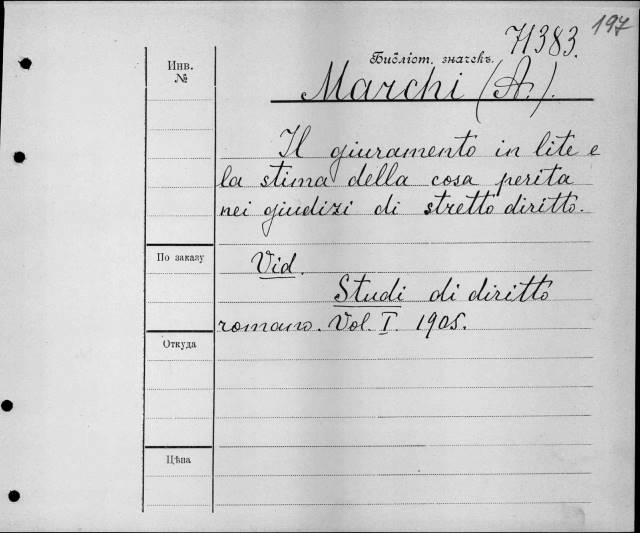 197
71383.
Инв.
№
Библіот. значекъ.
Marchi (A.).
Il giuramento in lite e
la stima della cosa perita
nei giudizi di stretto diritto.
По заказу
Vid.
Studi di diritto
romano. Vol. I. 1905.
Откуда
Цѣна